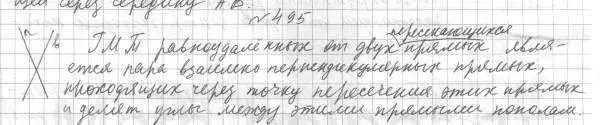 через середину АВ.
№495
пересекающихся
a b ГМТ равноудалённых от двух прямых явля-
ется пара взаимно перпендикулярных прямых,
проходящих через точку пересечения этих прямых
и делят углы между этими прямыми пополам.